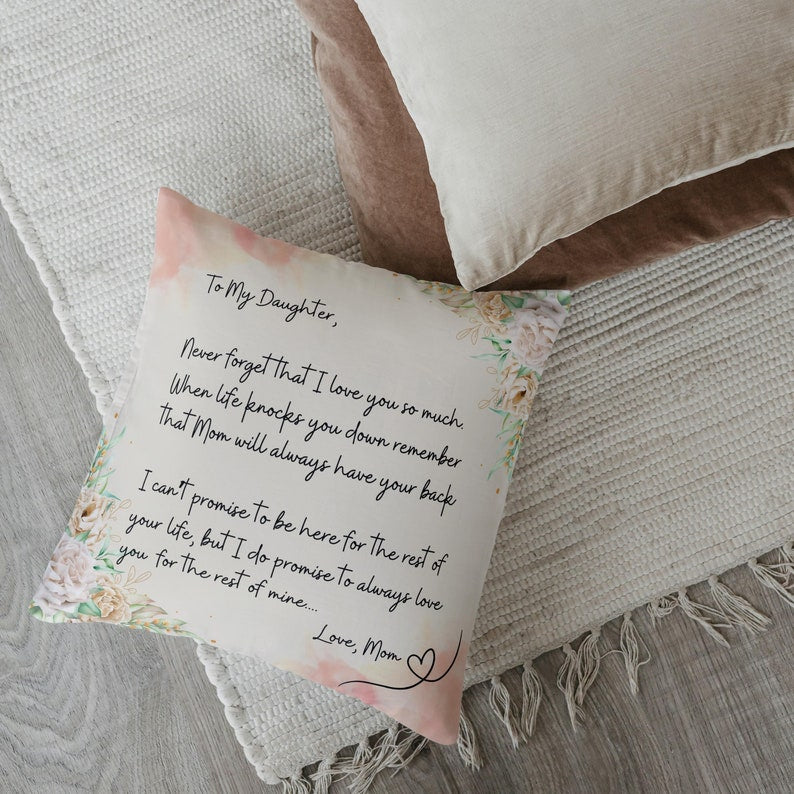 To My Daughter,
Never forget that I love you so much.
When life knocks you down remember
that Mom will always have your back
I can't promise to be here for the rest of
your life, but I do promise to always love
you for the rest of mine....
Love, Mom